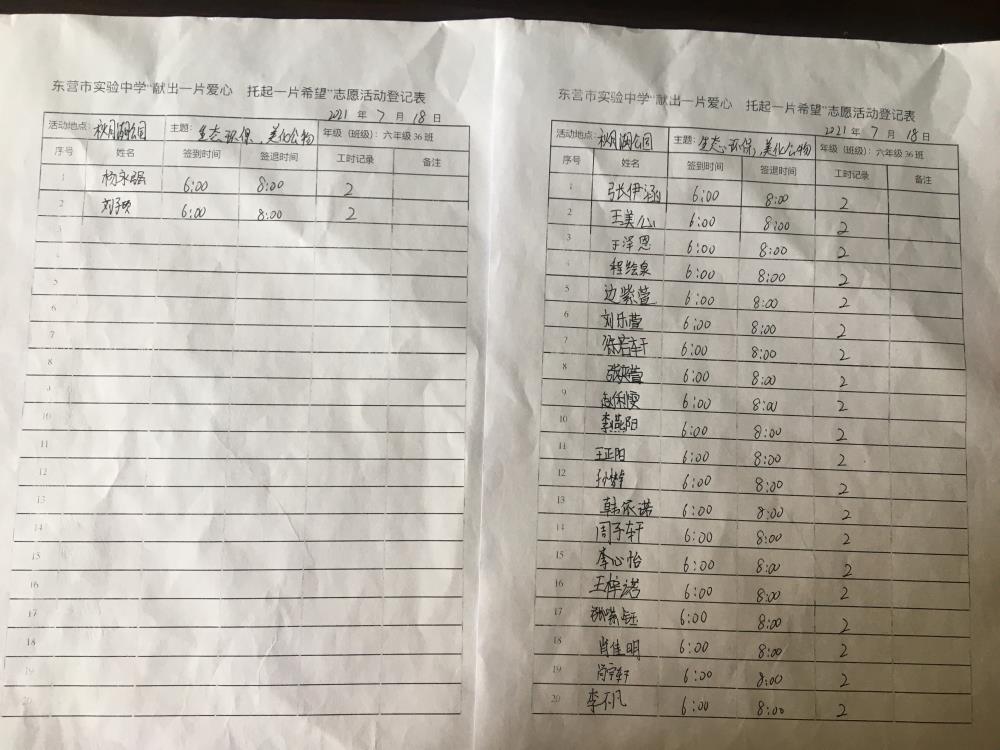 东营市实验中学“献出一片爱心 托起一片希望”志愿活动登记表
2021年7月18日
活动地点: 秋月湖公园 主题: 生态环保,美化公物 年级（班级）：六年级36班
序号 姓名 签到时间 签退时间 工时记录 备注
1 杨永强 6:00 8:00 2
2 6:00 8:00 2
3
4
5
6
7
8
9
10
11
12
13
14
15
16
17
18
19
20
东营市实验中学“献出一片爱心 托起一片希望”志愿活动登记表
2021年7月18日
活动地点: 秋月湖公园 主题: 生态环保,美化公物 年级（班级）：六年级36班
序号 姓名 签到时间 签退时间 工时记录 备注
1 张伊涵 6:00 8:00 2
2 王美心 6:00 8:00 2
3 于泽恩 6:00 8:00 2
4 程绘泉 6:00 8:00 2
5 边紫萱 6:00 8:00 2
6 刘乐萱 6:00 8:00 2
7 徐若轩 6:00 8:00 2
8 6:00 8:00 2
9 6:00 8:00 2
10 李燕阳 6:00 8:00 2
11 王正阳 6:00 8:00 2
12 6:00 8:00 2
13 韩依诺 6:00 8:00 2
14 周子轩 6:00 8:00 2
15 李心怡 6:00 8:00 2
16 王梓诺 6:00 8:00 2
17 6:00 8:00 2
18 肖佳明 6:00 8:00 2
19 尚宇轩 6:00 8:00 2
20 李不凡 6:00 8:00 2